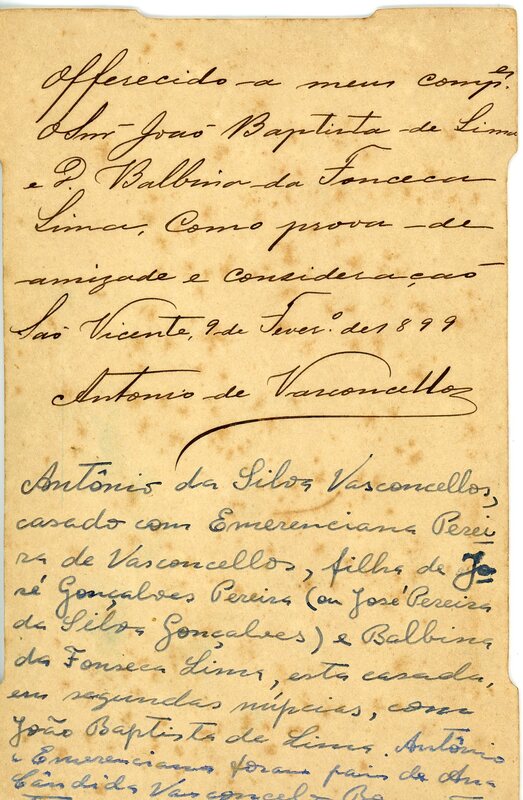 Offerecido-a meus comp.es
O Snr João Baptista-de Lima
e D. Balbina da Fonceca
Lima, Como prova-de
amizade e consideração
São Vicente, 9 de Fever.o de 1899
Antonio de Vasconcellos
Antônio da Silva Vasconcellos,
casado com Emerenciana Perei
ra de Vasconcellos, filha de Jo
sé Gonçalves Pereira (ou José Pereira
da Silva Gonçalves) e Balbina
da Fonseca Lima, esta casada,
em segundas núpcias, com
João Baptista de Lima. Antônio
e Emerenciana foram pais de Ana
Cândida Vasconcelos